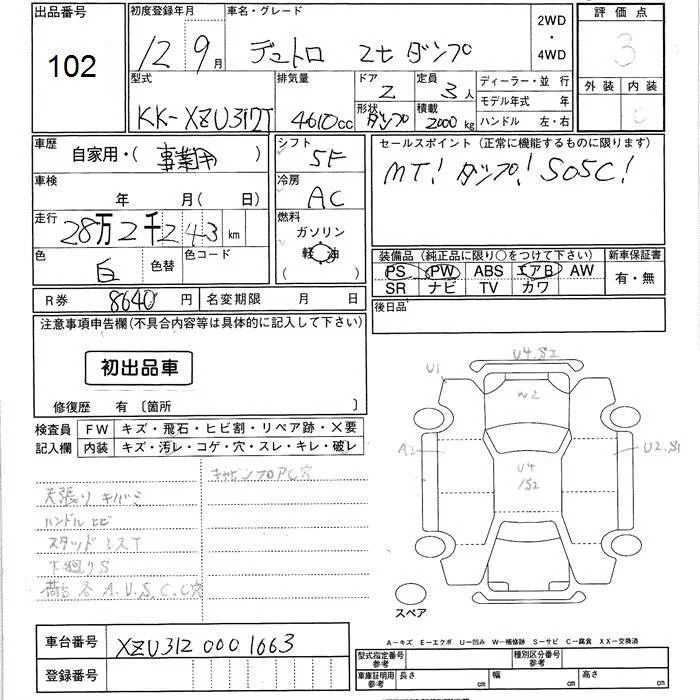 出品番号
102
初度登録年月
12年 9月
車名・グレード
デュトロ 2t ダンプ
2WD
・
4WD
評価点
3
外装 内装
C
型式
KK-XZU312T
排気量
4610cc
ドア
2
形状
ダンプ
定員
3人
積載
2000kg
ディーラー・並行
モデル年式 年
ハンドル 左・右
車歴
自家用・(事業用)
シフト
5F
セールスポイント(正常に機能するものに限ります)
MT! ダンプ! SO5C!
車検
年 月(日)
冷房
AC
走行
28万2千243km
燃料
ガソリン
(軽油)
色
白
色替
色コード
装備品(純正品に限り○をつけて下さい)
新車保証書
PS PW ABS エアB AW
SR ナビ TV カワ
有・無
R券 8640円
名変期限 月 日
後日品
注意事項申告欄(不具合内容等は具体的に記入して下さい)
初出品車
修復歴 有〔箇所 〕
検査員
記入欄
FW キズ・飛石・ヒビ割・リペア跡・X要
内装 キズ・汚レ・コゲ・穴・スレ・キレ・破レ
キャビンフロアC穴
天張り キバミ
ハンドル ヒビ
スタッドレスT
下廻りS
荷台各A.U.S.C.C穴
U4.S2
U1
W2
A2
U2.S1
U4
1S2
スペア
車台番号 XZU312 0001663
登録番号
A-キズ E-エクボ U-凹み W-補修跡 S-サビ C-腐食 XX-交換済
型式指定番号
参考
種別区分番号
参考
車庫証明用
参考
長さ cm
幅 cm
高さ cm